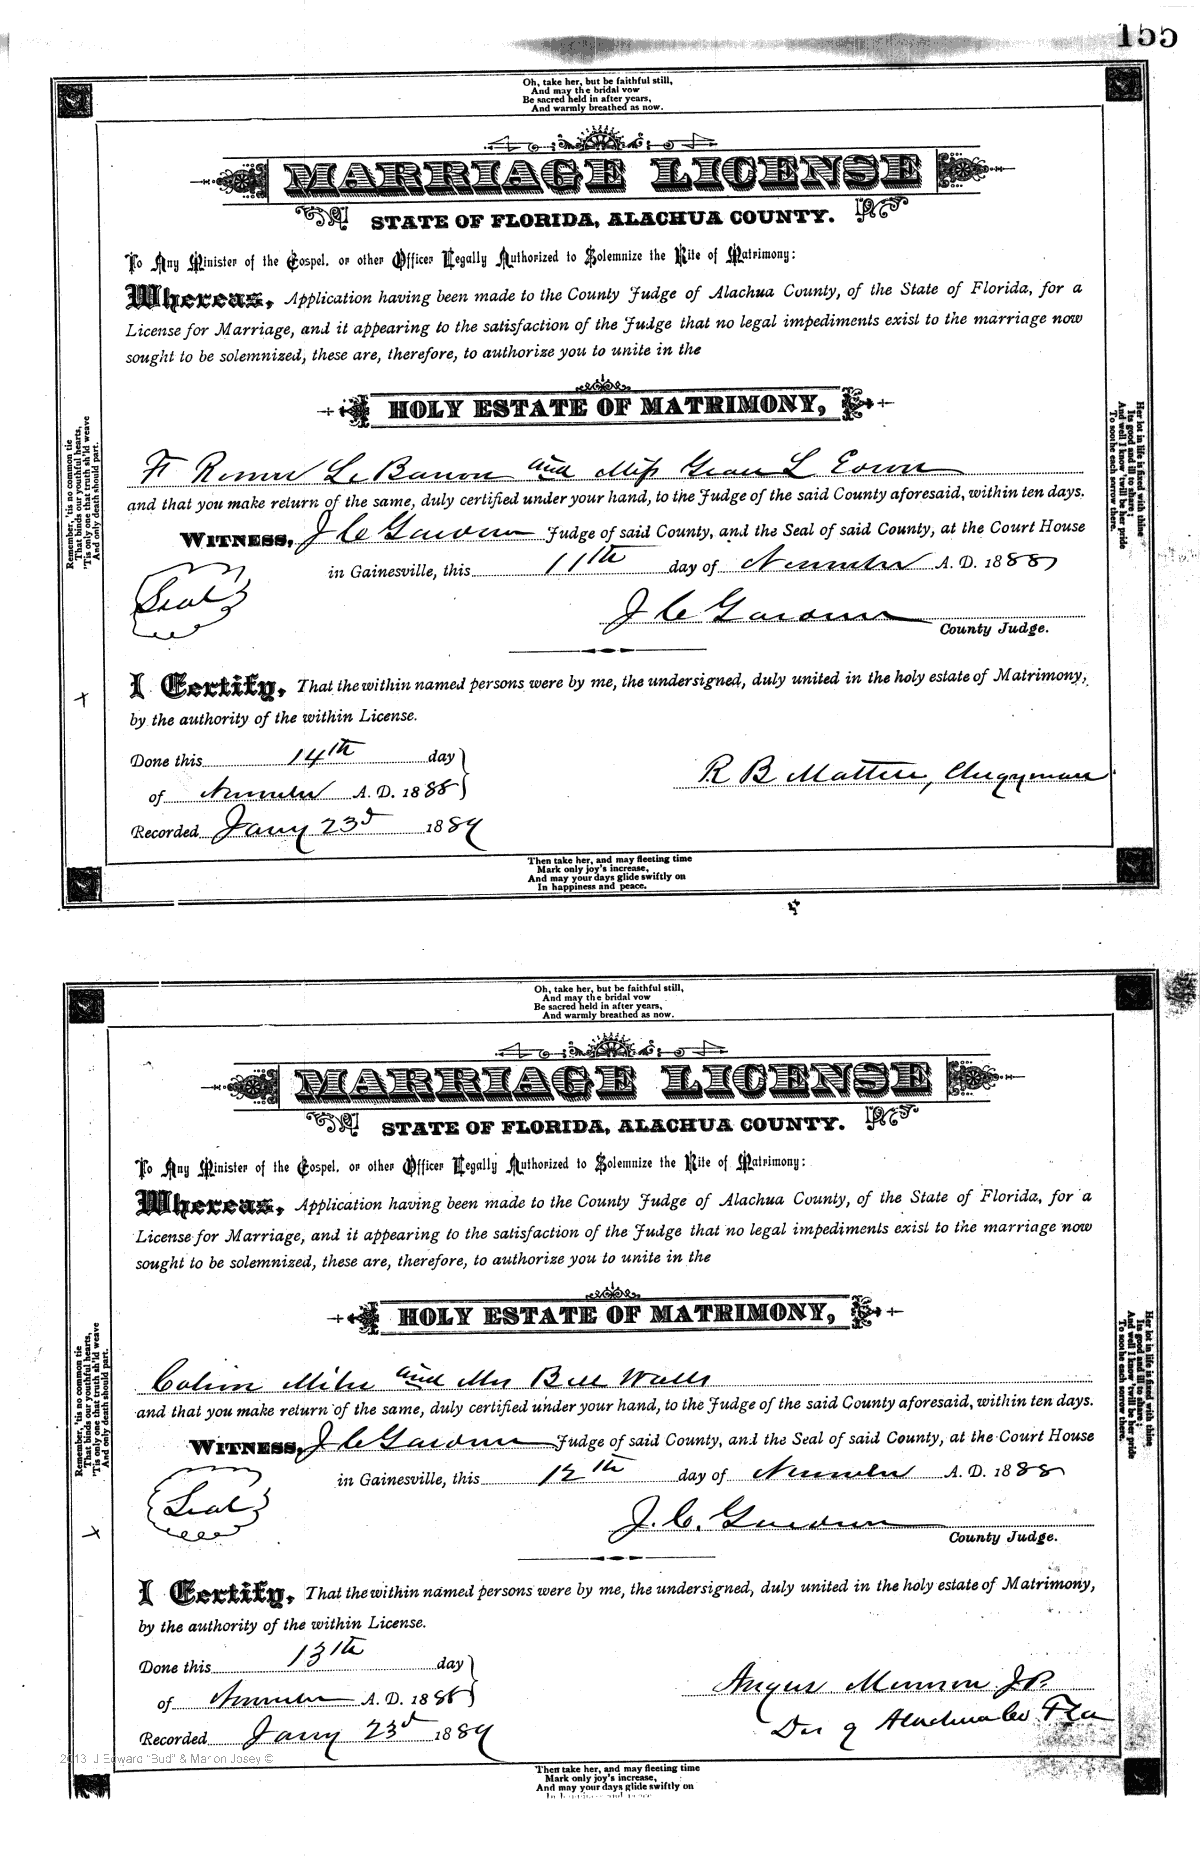 155
Oh, take her, but be faithful still,
And may the bridal vow
Be sacred held in after years,
And warmly breathed as now.
MARRIAGE LICENSE
STATE OF FLORIDA, ALACHUA COUNTY.
To Any Minister of the Gospel, or other Officer Legally Authorized to Solemnize the Rite of Matrimony:
Whereas, Application having been made to the County Judge of Alachua County, of the State of Florida, for a
License for Marriage, and it appearing to the satisfaction of the Judge that no legal impediments exist to the marriage now
sought to be solemnized, these are, therefore, to authorize you to unite in the
HOLY ESTATE OF MATRIMONY,
Le Baron and Miss L
and that you make return of the same, duly certified under your hand, to the Judge of the said County aforesaid, within ten days.
WITNESS, J C Gardner Judge of said County, and the Seal of said County, at the Court House
in Gainesville, this 11th day of November A. D. 1888
Seal
J C Gardner
County Judge.
I Certify, That the within named persons were by me, the undersigned, duly united in the holy estate of Matrimony,
by the authority of the within License.
Done this 14th day
of November A. D. 1888
R B Clergyman
Recorded Jany 23d 1889
Then take her, and may fleeting time
Mark only joy's increase,
And may your days glide swiftly on
In happiness and peace.
Remember, 'tis no common tie
That binds our youthful hearts,
'Tis only one that truth sh'ld weave
And only death should part.
Her lot in life is fixed with thine
Its good and ill to share;
And well I know 'twill be her pride
To soothe each sorrow there.
Oh, take her, but be faithful still,
And may the bridal vow
Be sacred held in after years,
And warmly breathed as now.
MARRIAGE LICENSE
STATE OF FLORIDA, ALACHUA COUNTY.
To Any Minister of the Gospel, or other Officer Legally Authorized to Solemnize the Rite of Matrimony:
Whereas, Application having been made to the County Judge of Alachua County, of the State of Florida, for a
License for Marriage, and it appearing to the satisfaction of the Judge that no legal impediments exist to the marriage now
sought to be solemnized, these are, therefore, to authorize you to unite in the
HOLY ESTATE OF MATRIMONY,
and Mrs Bell Walls
and that you make return of the same, duly certified under your hand, to the Judge of the said County aforesaid, within ten days.
WITNESS, J C Gardner Judge of said County, and the Seal of said County, at the Court House
in Gainesville, this 12th day of November A. D. 1888
Seal
J. C. Gardner
County Judge.
I Certify, That the within named persons were by me, the undersigned, duly united in the holy estate of Matrimony,
by the authority of the within License.
Done this 13th day
of November A. D. 1888
Angus J P.
Alachua Co Fla
Recorded Jany 23d 1889
Then take her, and may fleeting time
Mark only joy's increase,
And may your days glide swiftly on
In happiness and peace.
Remember, 'tis no common tie
That binds our youthful hearts,
'Tis only one that truth sh'ld weave
And only death should part.
Her lot in life is fixed with thine
Its good and ill to share;
And well I know 'twill be her pride
To soothe each sorrow there.
2013 J Edward "Bud" & Marion Josey ©